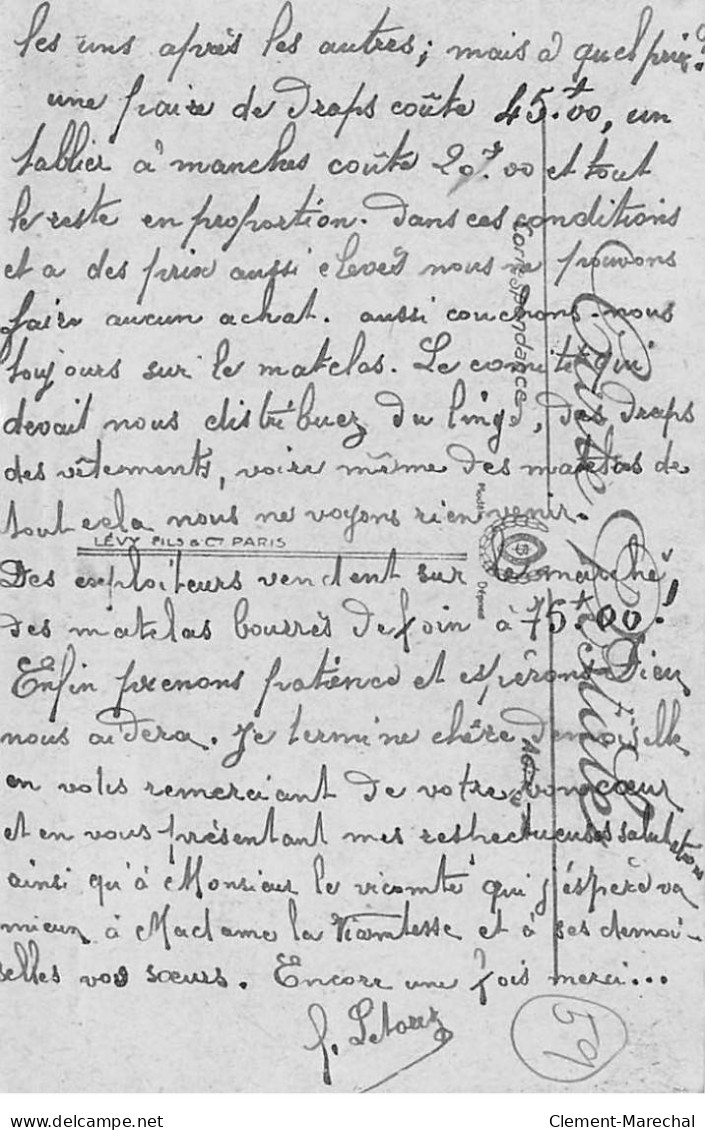 les uns après les autres; mais à quel prix?
une paire de draps coûte 45.f00, un
tablier à manches coûte 20f.00 et tout
le reste en proportion. Dans ces conditions
et a des prix aussi elevés nous ne pouvons
faire aucun achat. aussi couchons-nous
toujours sur le matelas. Le comité qui
devait nous distribuez du linge, des draps
des vêtements, voire même des matelas de
tout cela nous ne voyons rien venir.
LÉVY FILS & Cie PARIS
Des exploiteurs vendent sur le marché
des matelas bourrés de foin à 75f00!
Enfin prenons patience et espérons Dieu
nous aidera. Je termine chère Demoiselle
en vous remerciant de votre bon cœur
et en vous présentant mes respectueuses salutations
ainsi qu'à Monsieur le vicomte qui j'espère va
mieux à Madame la Vicomtesse et à ses demoi-
selles vos sœurs. Encore une fois merci...
f. Letorez
Carte Postale
Correspondance
Modèle Déposé
59
Clement-Marechal